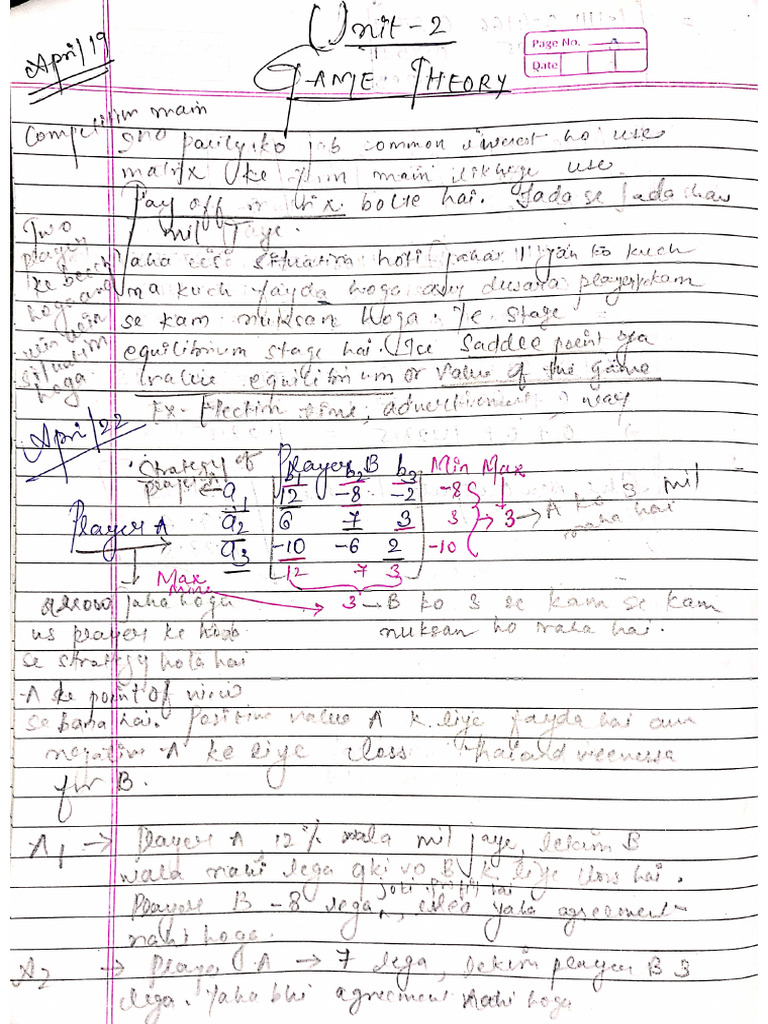 April/19
Unit-2
GAME THEORY
Page No. 2
Date
Competition main
Two player ke beech hoga and win win situation hoga
parties ko job common interest ho use
matrix ke form main likhege use
Pay off matrix bolte hai. Jada se jada
mil Jaye.
situation hoti jahan ko kuch
na kuch fayda hoga aur dusara player kam
se kam nuksan Hoga. Ye stage
equilibrium stage hai. Ise Saddle point ya
value equilibrium or value of the game
Ex. Election time, advertisement,
April/22
Strategy of player Player B Min Max
b1 b2 b3
a1 12 -8 -2 -8
Player A a2 6 7 3 3 → 3 → A ko 3 mil raha hai
a3 -10 -6 2 -10
12 7 3
Max Mini
arrow jaha hoga 3 - B ko 3 se kam se kam
us player ke nuksan ho raha hai.
se strategy hota hai
A ke point of view
se bana hai. Positive value A k liye fayda hai aur
negative A ke liye loss hai and
for B.
A1 → Player A, 12 wala mil jaye, lekin B
wala nahi lega qki vo B k liye loss hai.
Player B -8 lega, yaha agreement
nahi hoga.
A2 → Player A → 7 lega, lekin player B 3
lega. Yaha bhi agreement nahi hoga